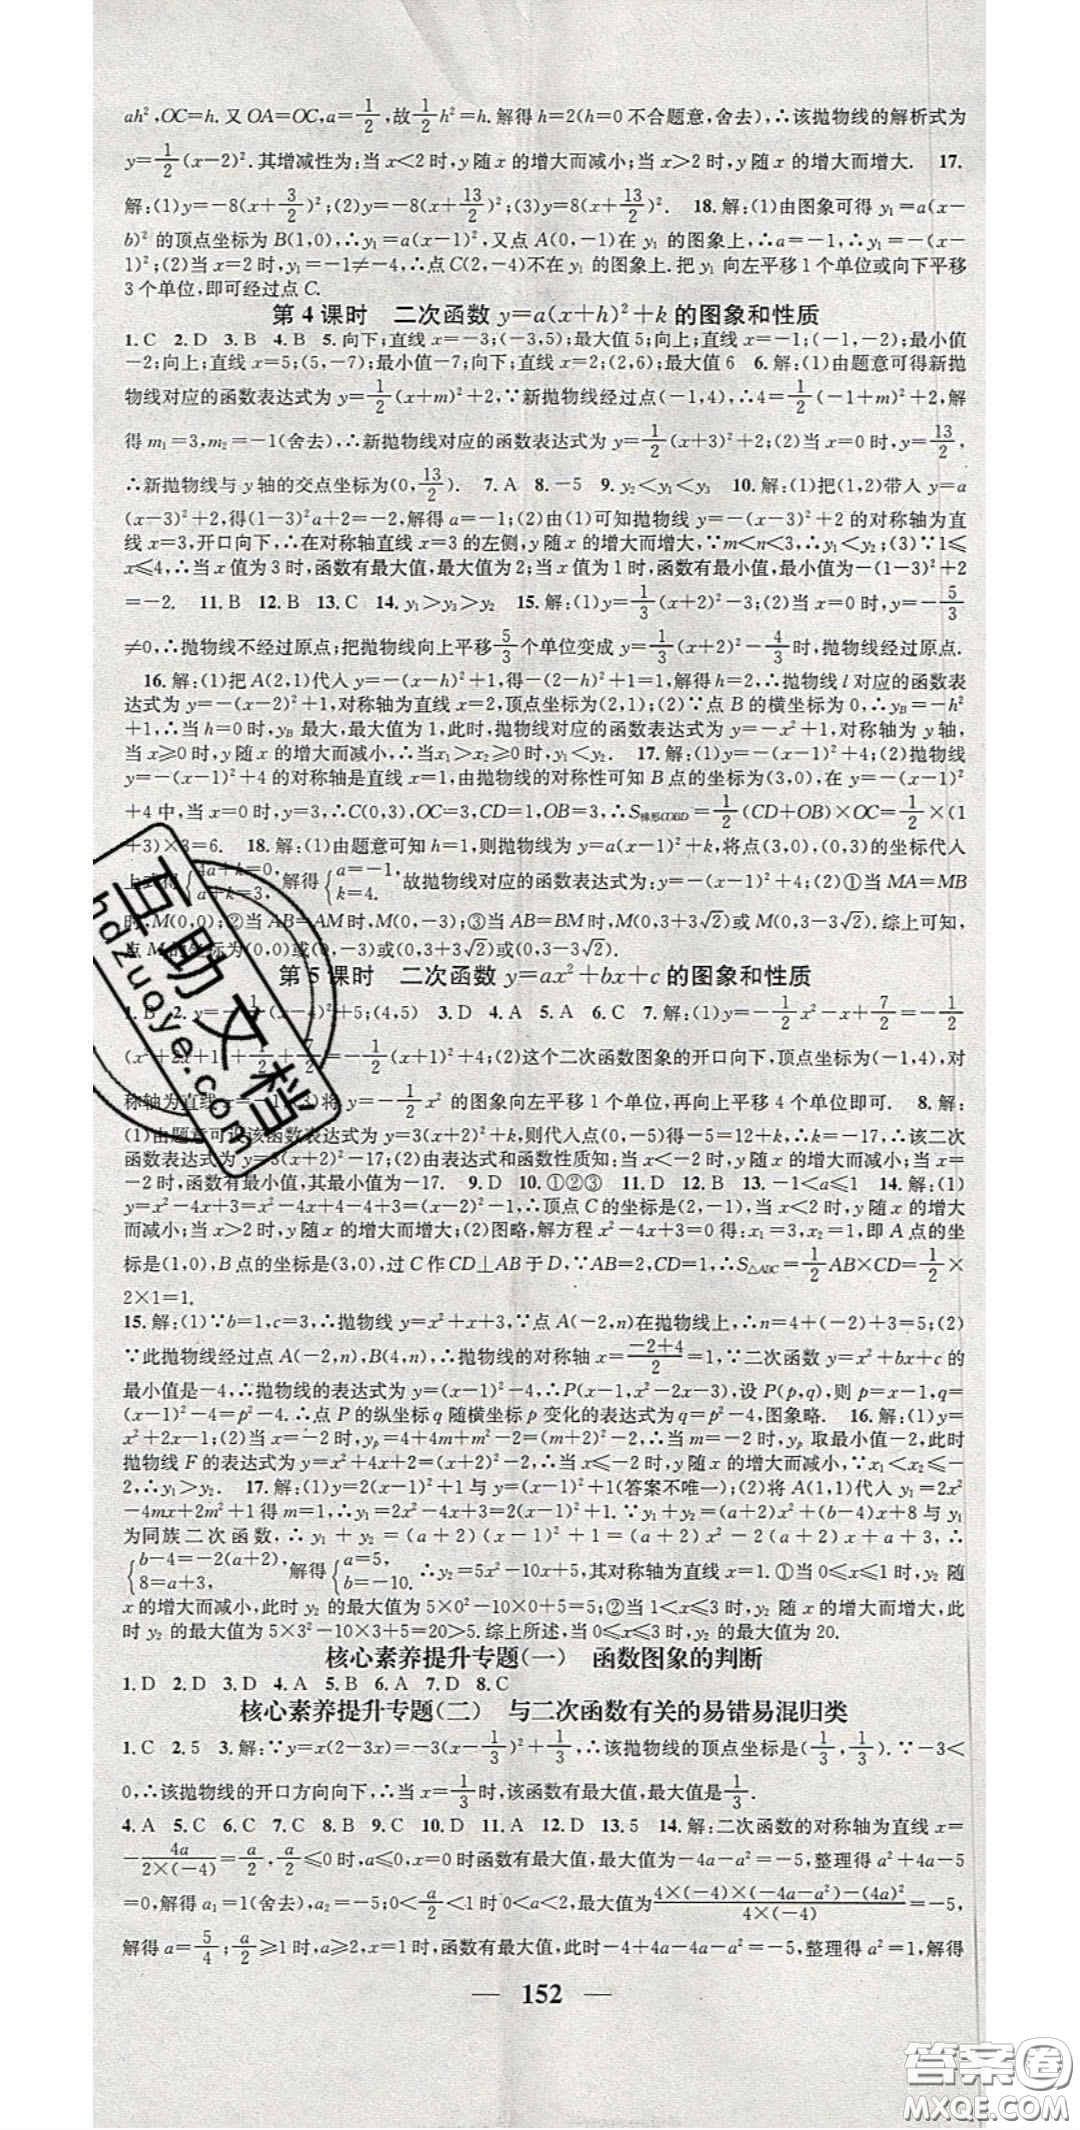 ah²,OC=h.又OA=OC,a=1/2,故1/2h²=h.解得h=2(h=0不合题意,舍去),∴该抛物线的解析式为
y=1/2(x-2)².其增减性为:当x<2时,y随x的增大而减小;当x>2时,y随x的增大而增大. 17.
解:(1)y=-8(x+3/2)²;(2)y=-8(x+13/2)²;(3)y=8(x+13/2)². 18.解:(1)由图象可得y₁=a(x-
b)²的顶点坐标为B(1,0),∴y₁=a(x-1)²,又点A(0,-1)在y₁的图象上,∴a=-1,∴y₁=-(x-
1)²;(2)当x=2时,y₁=-1≠-4,∴点C(2,-4)不在y₁的图象上.把y₁向左平移1个单位或向下平移
3个单位,即可经过点C.
第4课时 二次函数y=a(x+h)²+k的图象和性质
1.C 2.D 3.B 4.B 5.向下;直线x=-3;(-3,5);最大值5;向上;直线x=-2;(-2,-2);最小值
-2;向上;直线x=5;(5,-7);最小值-7;向下;直线x=2;(2,6);最大值6 6.解:(1)由题意可得新抛
物线对应的函数表达式为y=1/2(x+m)²+2,∵新抛物线经过点(-1,4),∴4=1/2(-1+m)²+2,解
得m₁=3,m₂=-1(舍去),∴新抛物线对应的函数表达式为y=1/2(x+3)²+2;(2)当x=0时,y=13/2,
∴新抛物线与y轴的交点坐标为(0,13/2). 7.A 8.-5 9.y₂<y₁<y₃ 10.解:(1)把(1,2)带人y=a
(x-3)²+2,得(1-3)²a+2=-2,解得a=-1;(2)由(1)可知抛物线y=-(x-3)²+2的对称轴为直
线x=3,开口向下,∴在对称轴直线x=3的左侧,y随x的增大而增大,∵m<n<3,∴y₁<y₂;(3)∵1≤
x≤4,∴当x值为3时,函数有最大值,最大值为2;当x值为1时,函数有最小值,最小值为-(1-3)²+2
=-2. 11.B 12.B 13.C 14.y₁>y₃>y₂ 15.解:(1)y=1/3(x+2)²-3;(2)当x=0时,y=-5/3
≠0,∴抛物线不经过原点;把抛物线向上平移5/3个单位变成y=1/3(x+2)²-4/3时,抛物线经过原点.
16.解:(1)把A(2,1)代入y=-(x-h)²+1,得-(2-h)²+1=1,解得h=2,∴抛物线l对应的函数表
达式为y=-(x-2)²+1,对称轴为直线x=2,顶点坐标为(2,1);(2)∵点B的横坐标为0,∴y_B=-h²
+1,∴当h=0时,y_B最大,最大值为1,此时,抛物线对应的函数表达式为y=-x²+1,对称轴为y轴,
当x≥0时,y随x的增大而减小,∴当x₁>x₂≥0时,y₁<y₂. 17.解:(1)y=-(x-1)²+4;(2)抛物线
y=-(x-1)²+4的对称轴是直线x=1,由抛物线的对称性可知B点的坐标为(3,0),在y=-(x-1)²
+4中,当x=0时,y=3,∴C(0,3),OC=3,CD=1,OB=3,∴S梯形COBD=1/2(CD+OB)×OC=1/2×(1
+3)×3=6. 18.解:(1)由题意可知h=1,则抛物线为y=a(x-1)²+k,将点(3,0),(0,3)的坐标代人
上式得{4a+k=0,a+k=3,解得{a=-1,k=4.故抛物线对应的函数表达式为:y=-(x-1)²+4;(2)①当MA=MB
时,M(0,0);②当AB=AM时,M(0,-3);③当AB=BM时,M(0,3+3√2)或M(0,3-3√2).综上可知,
点M的坐标为(0,0)或(0,-3)或(0,3+3√2)或(0,3-3√2).
第5课时 二次函数y=ax²+bx+c的图象和性质
1.B 2.y=-1/2(x-4)²+5;(4,5) 3.D 4.A 5.A 6.C 7.解:(1)y=-1/2x²-x+7/2=-1/2
(x²+2x+1)+1/2+7/2=-1/2(x+1)²+4;(2)这个二次函数图象的开口向下,顶点坐标为(-1,4),对
称轴为直线x=-1;(3)将y=-1/2x²的图象向左平移1个单位,再向上平移4个单位即可. 8.解:
(1)由题意可设该函数表达式为y=3(x+2)²+k,则代入点(0,-5)得-5=12+k,∴k=-17,∴该二次
函数表达式为y=3(x+2)²-17;(2)由表达式和函数性质知:当x<-2时,y随x的增大而减小;当x=
-2时,函数有最小值,其最小值为-17. 9.D 10.①②③ 11.D 12.B 13.-1<a≤1 14.解:(1)
y=x²-4x+3=x²-4x+4-4+3=(x-2)²-1,∴顶点C的坐标是(2,-1),当x<2时,y随x的增大
而减小;当x>2时,y随x的增大而增大;(2)图略,解方程x²-4x+3=0得:x₁=3,x₂=1,即A点的坐
标是(1,0),B点的坐标是(3,0),过C作CD⊥AB于D,∵AB=2,CD=1,∴S△ABC=1/2AB×CD=1/2×
2×1=1.
15.解:(1)∵b=1,c=3,∴抛物线y=x²+x+3,∵点A(-2,n)在抛物线上,∴n=4+(-2)+3=5;(2)
∵此抛物线经过点A(-2,n),B(4,n),∴抛物线的对称轴x=(-2+4)/2=1,∵二次函数y=x²+bx+c的
最小值是-4,∴抛物线的表达式为y=(x-1)²-4,∴P(x-1,x²-2x-3),设P(p,q),则p=x-1,q=
(x-1)²-4=p²-4.∴点P的纵坐标q随横坐标p变化的表达式为q=p²-4,图象略. 16.解:(1)y=
x²+2x-1;(2)当x=-2时,y_p=4+4m+m²-2=(m+2)²-2,∴当m=-2时,y_p取最小值-2,此时
抛物线F的表达式为y=x²+4x+2=(x+2)²-2,∴当x≤-2时,y随x的增大而减小,∵x₁<x₂≤-
2,∴y₁>y₂. 17.解:(1)y=2(x-1)²+1与y=(x-1)²+1(答案不唯一);(2)将A(1,1)代入y₁=2x²
-4mx+2m²+1得m=1,∴y₁=2x²-4x+3=2(x-1)²+1.∵y₁+y₂=(a+2)x²+(b-4)x+8与y₁
为同族二次函数,∴y₁+y₂=(a+2)(x-1)²+1=(a+2)x²-2(a+2)x+a+3,∴
{b-4=-2(a+2),8=a+3,解得{a=5,b=-10.∴y₂=5x²-10x+5,其对称轴为直线x=1.①当0≤x≤1时,y₂随
x的增大而减小,此时y₂的最大值为5×0²-10×0+5=5;②当1<x≤3时,y₂随x的增大而增大,此
时y₂的最大值为5×3²-10×3+5=20>5.综上所述,当0≤x≤3时,y₂的最大值为20.
核心素养提升专题(一) 函数图象的判断
1.D 2.D 3.D 4.A 5.B 6.A 7.D 8.C
核心素养提升专题(二) 与二次函数有关的易错易混归类
1.C 2.5 3.解:∵y=x(2-3x)=-3(x-1/3)²+1/3,∴该抛物线的顶点坐标是(1/3,1/3).∵-3<
0,∴该抛物线的开口方向向下,∴当x=1/3时,该函数有最大值,最大值是1/3.
4.A 5.C 6.C 7.C 8.B 9.C 10.D 11.A 12.D 13.5 14.解:二次函数的对称轴为直线x=
-4a/(2×(-4))=a/2,a/2≤0时,a≤0,x=0时函数有最大值,最大值为-4a-a²=-5,整理得a²+4a-5
=0,解得a₁=1(舍去),a₂=-5;0<a/2<1时0<a<2,最大值为(4×(-4)×(-4a-a²)-(4a)²)/(4×(-4))=-5,
解得a=5/4;a/2≥1时,a≥2,x=1时,函数有最大值,此时-4+4a-4a-a²=-5,整理得a²=1,解得
— 152 —
互助文档
hdzuoye.com
答案圈
MXQE.COM